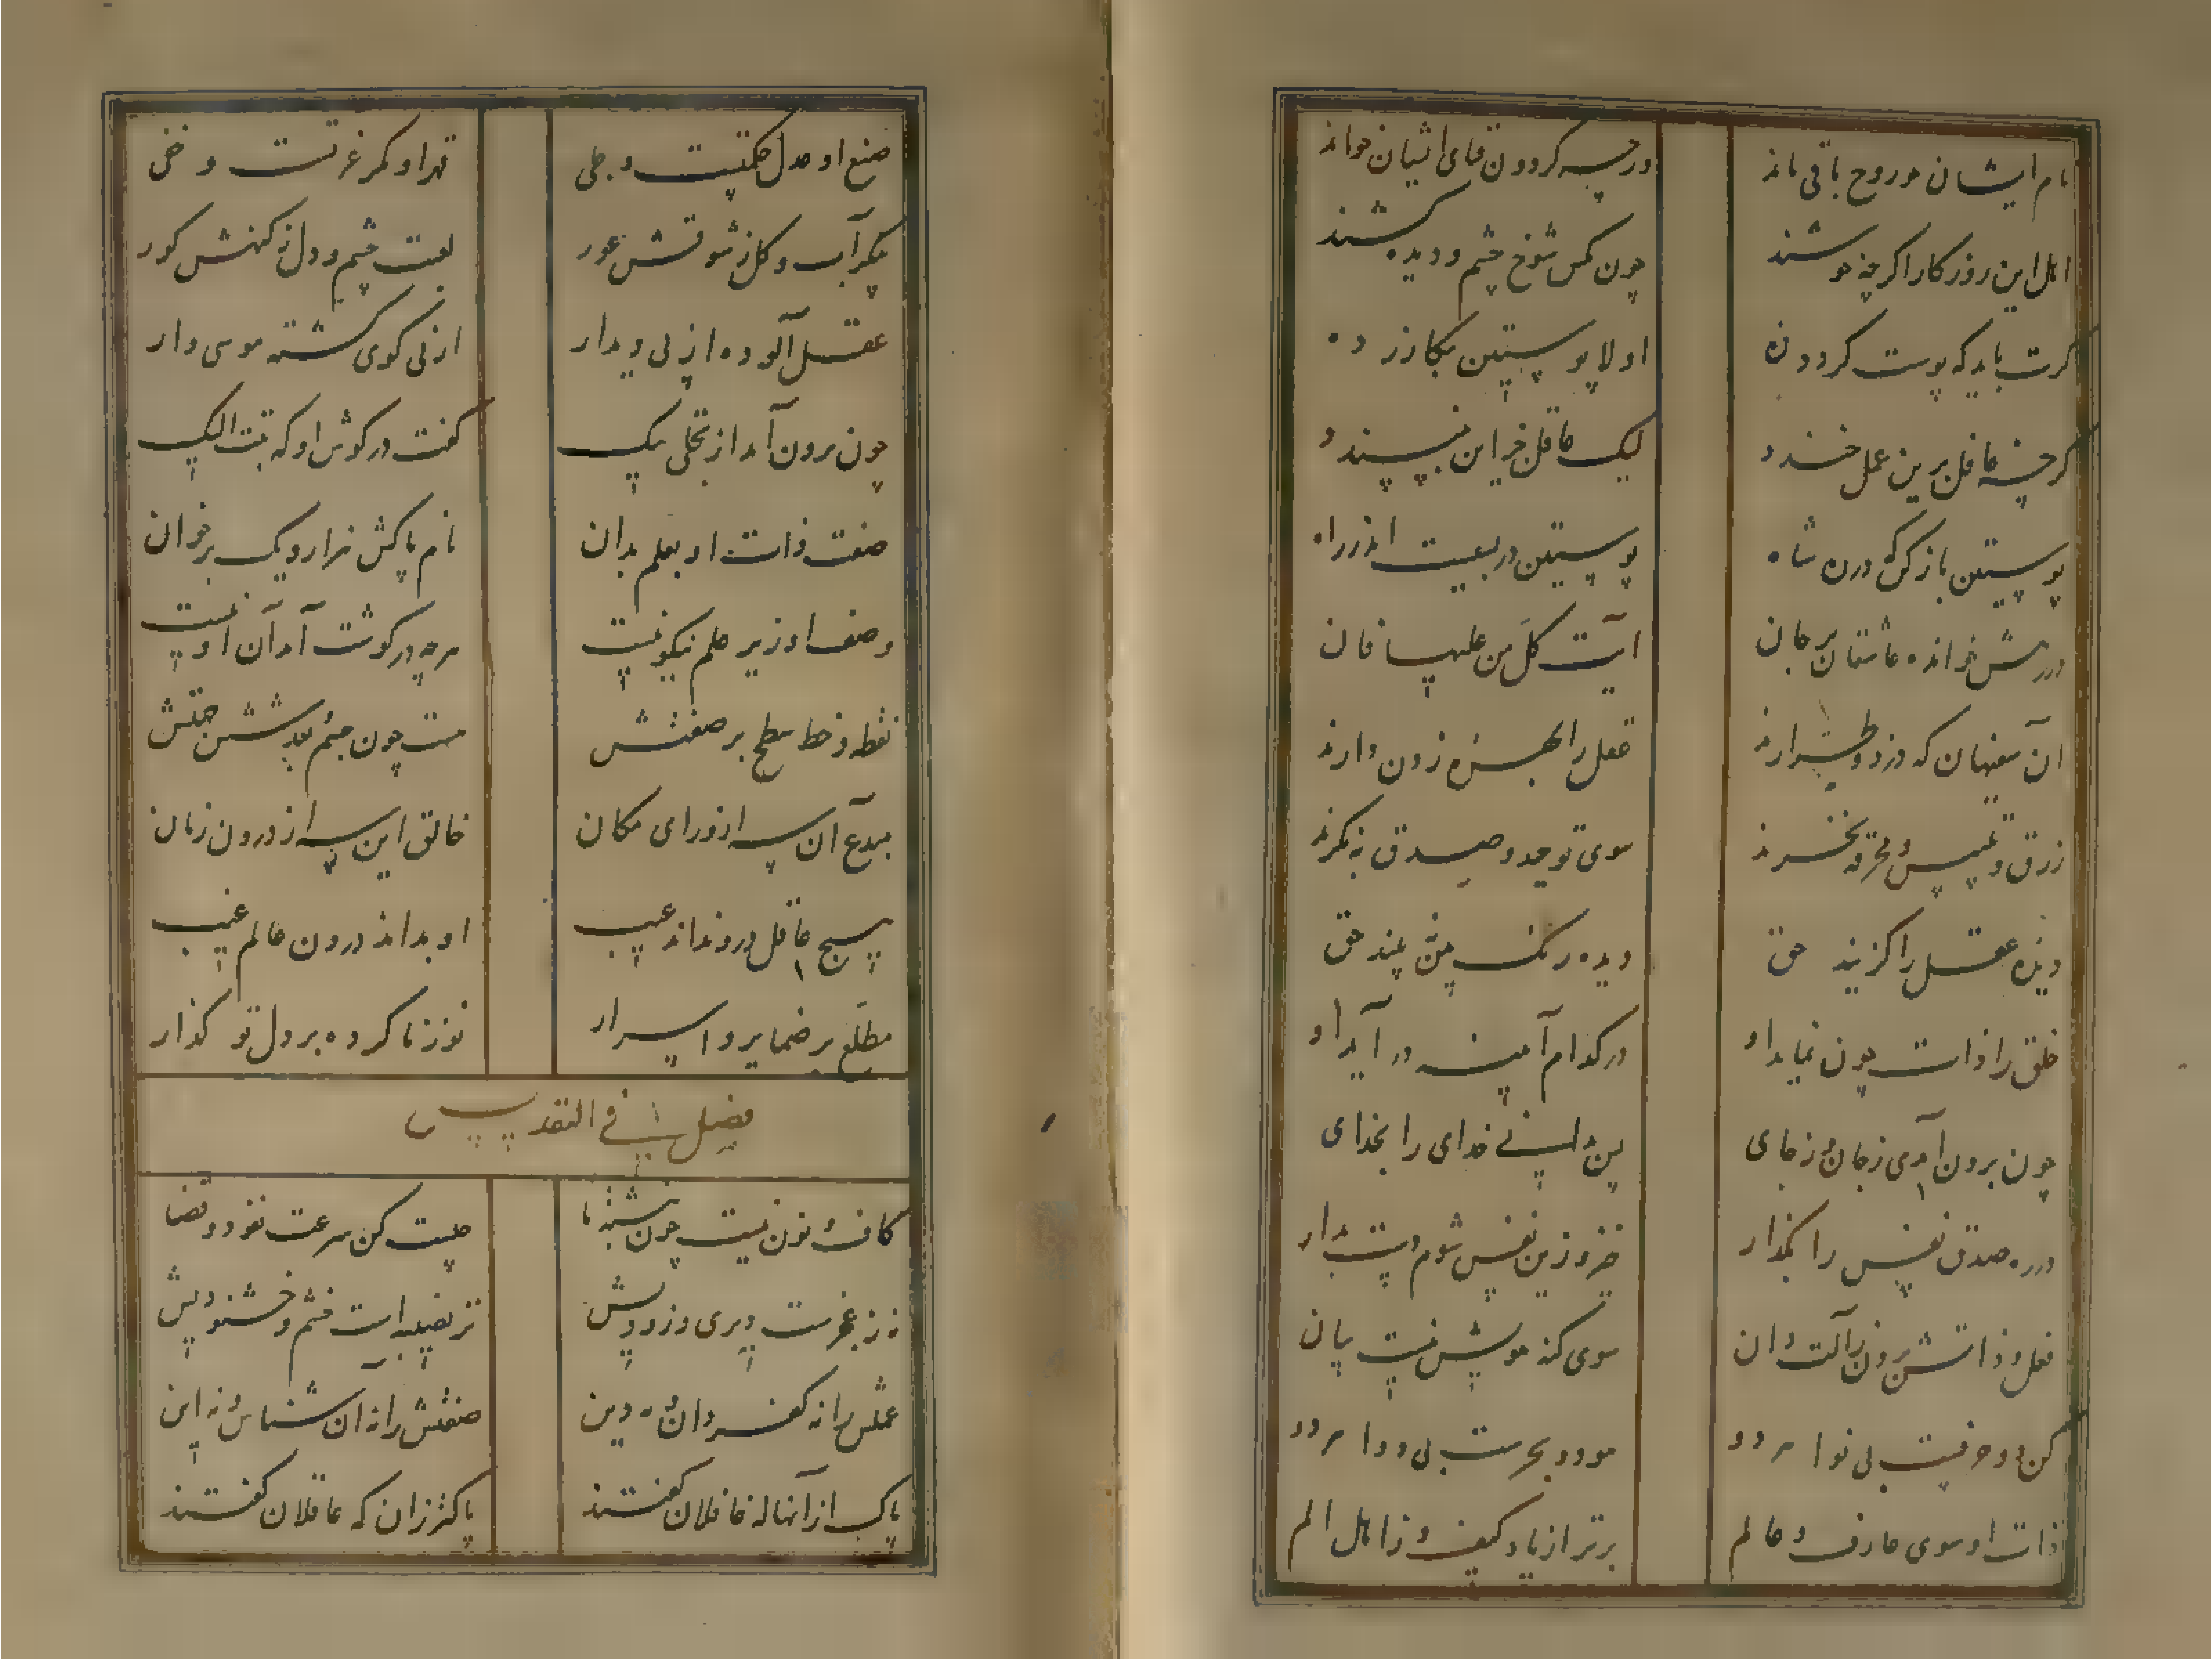 نام ایشان چو روح باقی ماند ورچه گردون قبای ایشان خواند
اهل این روزگار اگرچه خوشند چون مگس شوخ چشم و دیده کشند
گرت باید که پوست گردد زه اولا پوستین بگازر ده
گرچه غافل برین عمل خندد لیک عاقل خر این نپسندد
پوستین باز کن که در ره شاه پوستین در بسیست اندر راه
دردش خوانده عاشقان بر جان آیت کل من علیها فان
آن سفیهان که دزد و طرارند عقل را بهره زون دارند
زرق و تلبیس و مخرقه نخرند سوی توحید و صدق به نگرند
ویژه عقل را گزیند حق دیده رنگ بین نبیند حق
خلق را ذات چون نماید او در کدام آینه درآید او
چون برون آمدی ز جان و ز جای پس ببینی خدای را بخدای
در ره صدق نفس را بگذار خیز و زین نفس شوم دست بدار
فعل و ذاتش برون ز آلت دان سوی کنه هویتش نیست بیان
کن دو حرفیست بی نوا هر دو هو دو بحرست بی دوا هر دو
ذات او سوی عارف و عالم برتر از ما و کیف و ز اهل الم
صنع او عدل حکمتیست و جلی قهر او مکر غیرتست و خفی
پیکر آب و گل ز شوقش عور لعبت چشم و دل ز کنهش کور
عقل آلوده از پی دیدار ارنی گوی گشته موسی وار
چون برون آمد از تجلی پیک گفت در گوش او که تبت الیک
صفت ذات او بعلم بدان نام پاکش هزار و یک برخوان
وصف او زیر علم نیکو نیست هرچه در گوشت آمد آن او نیست
نقطه و خط و سطح بر صفتش هست چون جسم و بعد شش جهتش
مبدع آن سه از ورای مکان خالق این سه از درون زمان
هیچ عاقل درو نداند عیب او بداند درون عالم غیب
مطلع بر ضمایر و اسرار نوز ناکرده بر دل تو گذار
فصل فی التقدیس
کاف و نون نیست جز نبشته ما چیست کن سرعت نفود و قضا
نه ز عجزست دیری و زودیش نز طبیعست خشم و خشنودیش
علتش را نه کفر دان و نه دین صفتش را نه آن شناس و نه این
پاک از آنها که غافلان گفتند پاکتر زان که عاقلان گفتند